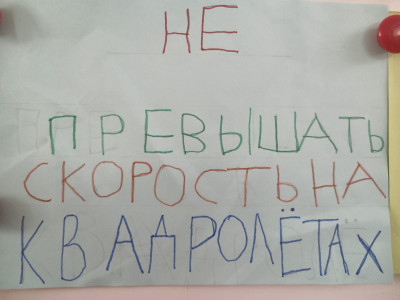 НЕ
ПРЕВЫШАТЬ
СКОРОСТЬ НА
КВАДРОЛЁТАХ